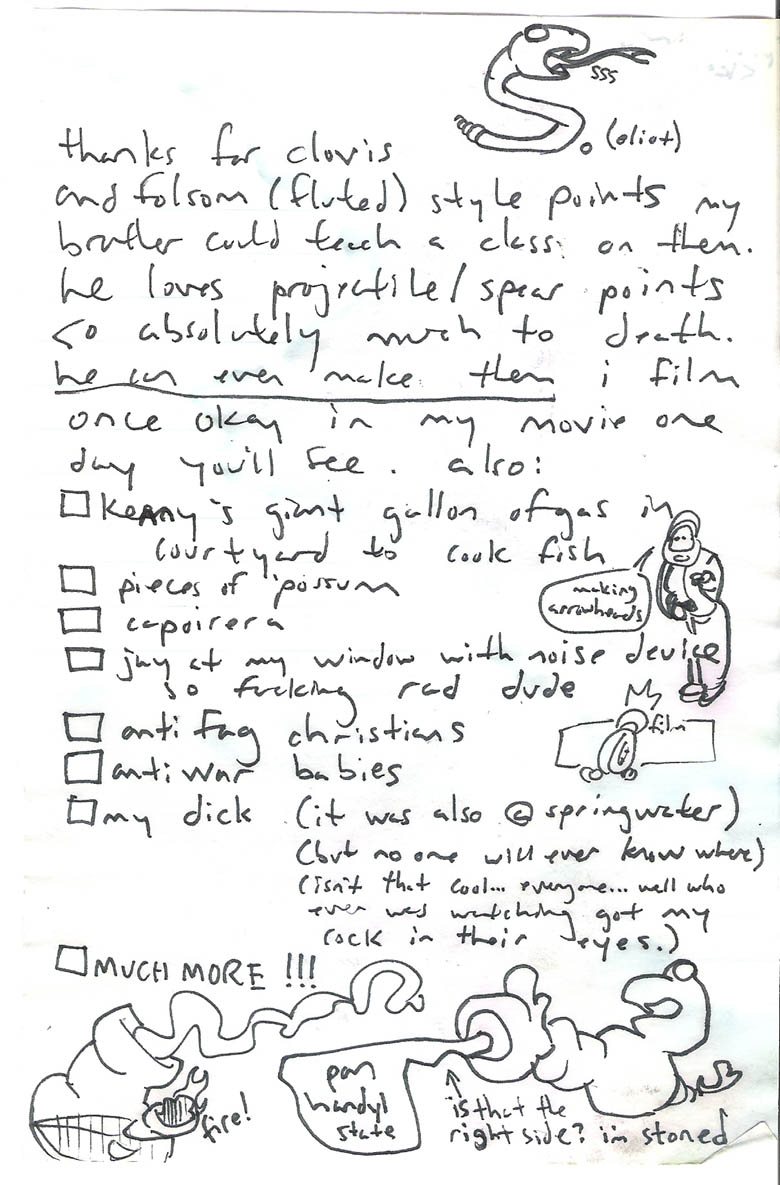 sss
S. (eliot)
thanks for clovis
and folsom (fluted) style points my
brother could teach a class on them.
he loves projectile/spear points
so absolutely much to death.
he can even make them i film
once okay in my movie one
day you'll see. also:
□ kenny's giant gallon of gas in
courtyard to cook fish
□ pieces of possum
making
arrowheads
□ capoirera
□ jay at my window with noise device
so fucking rad dude
□ anti fag christians
film
□ anti war babies
□ my dick (it was also @ springwater)
(but no one will ever know where)
(isn't that cool... everyone... well who
ever was watching got my
cock in their eyes.)
□ MUCH MORE !!!
fire!
pan
handyl
state
is that the
right side? i'm stoned